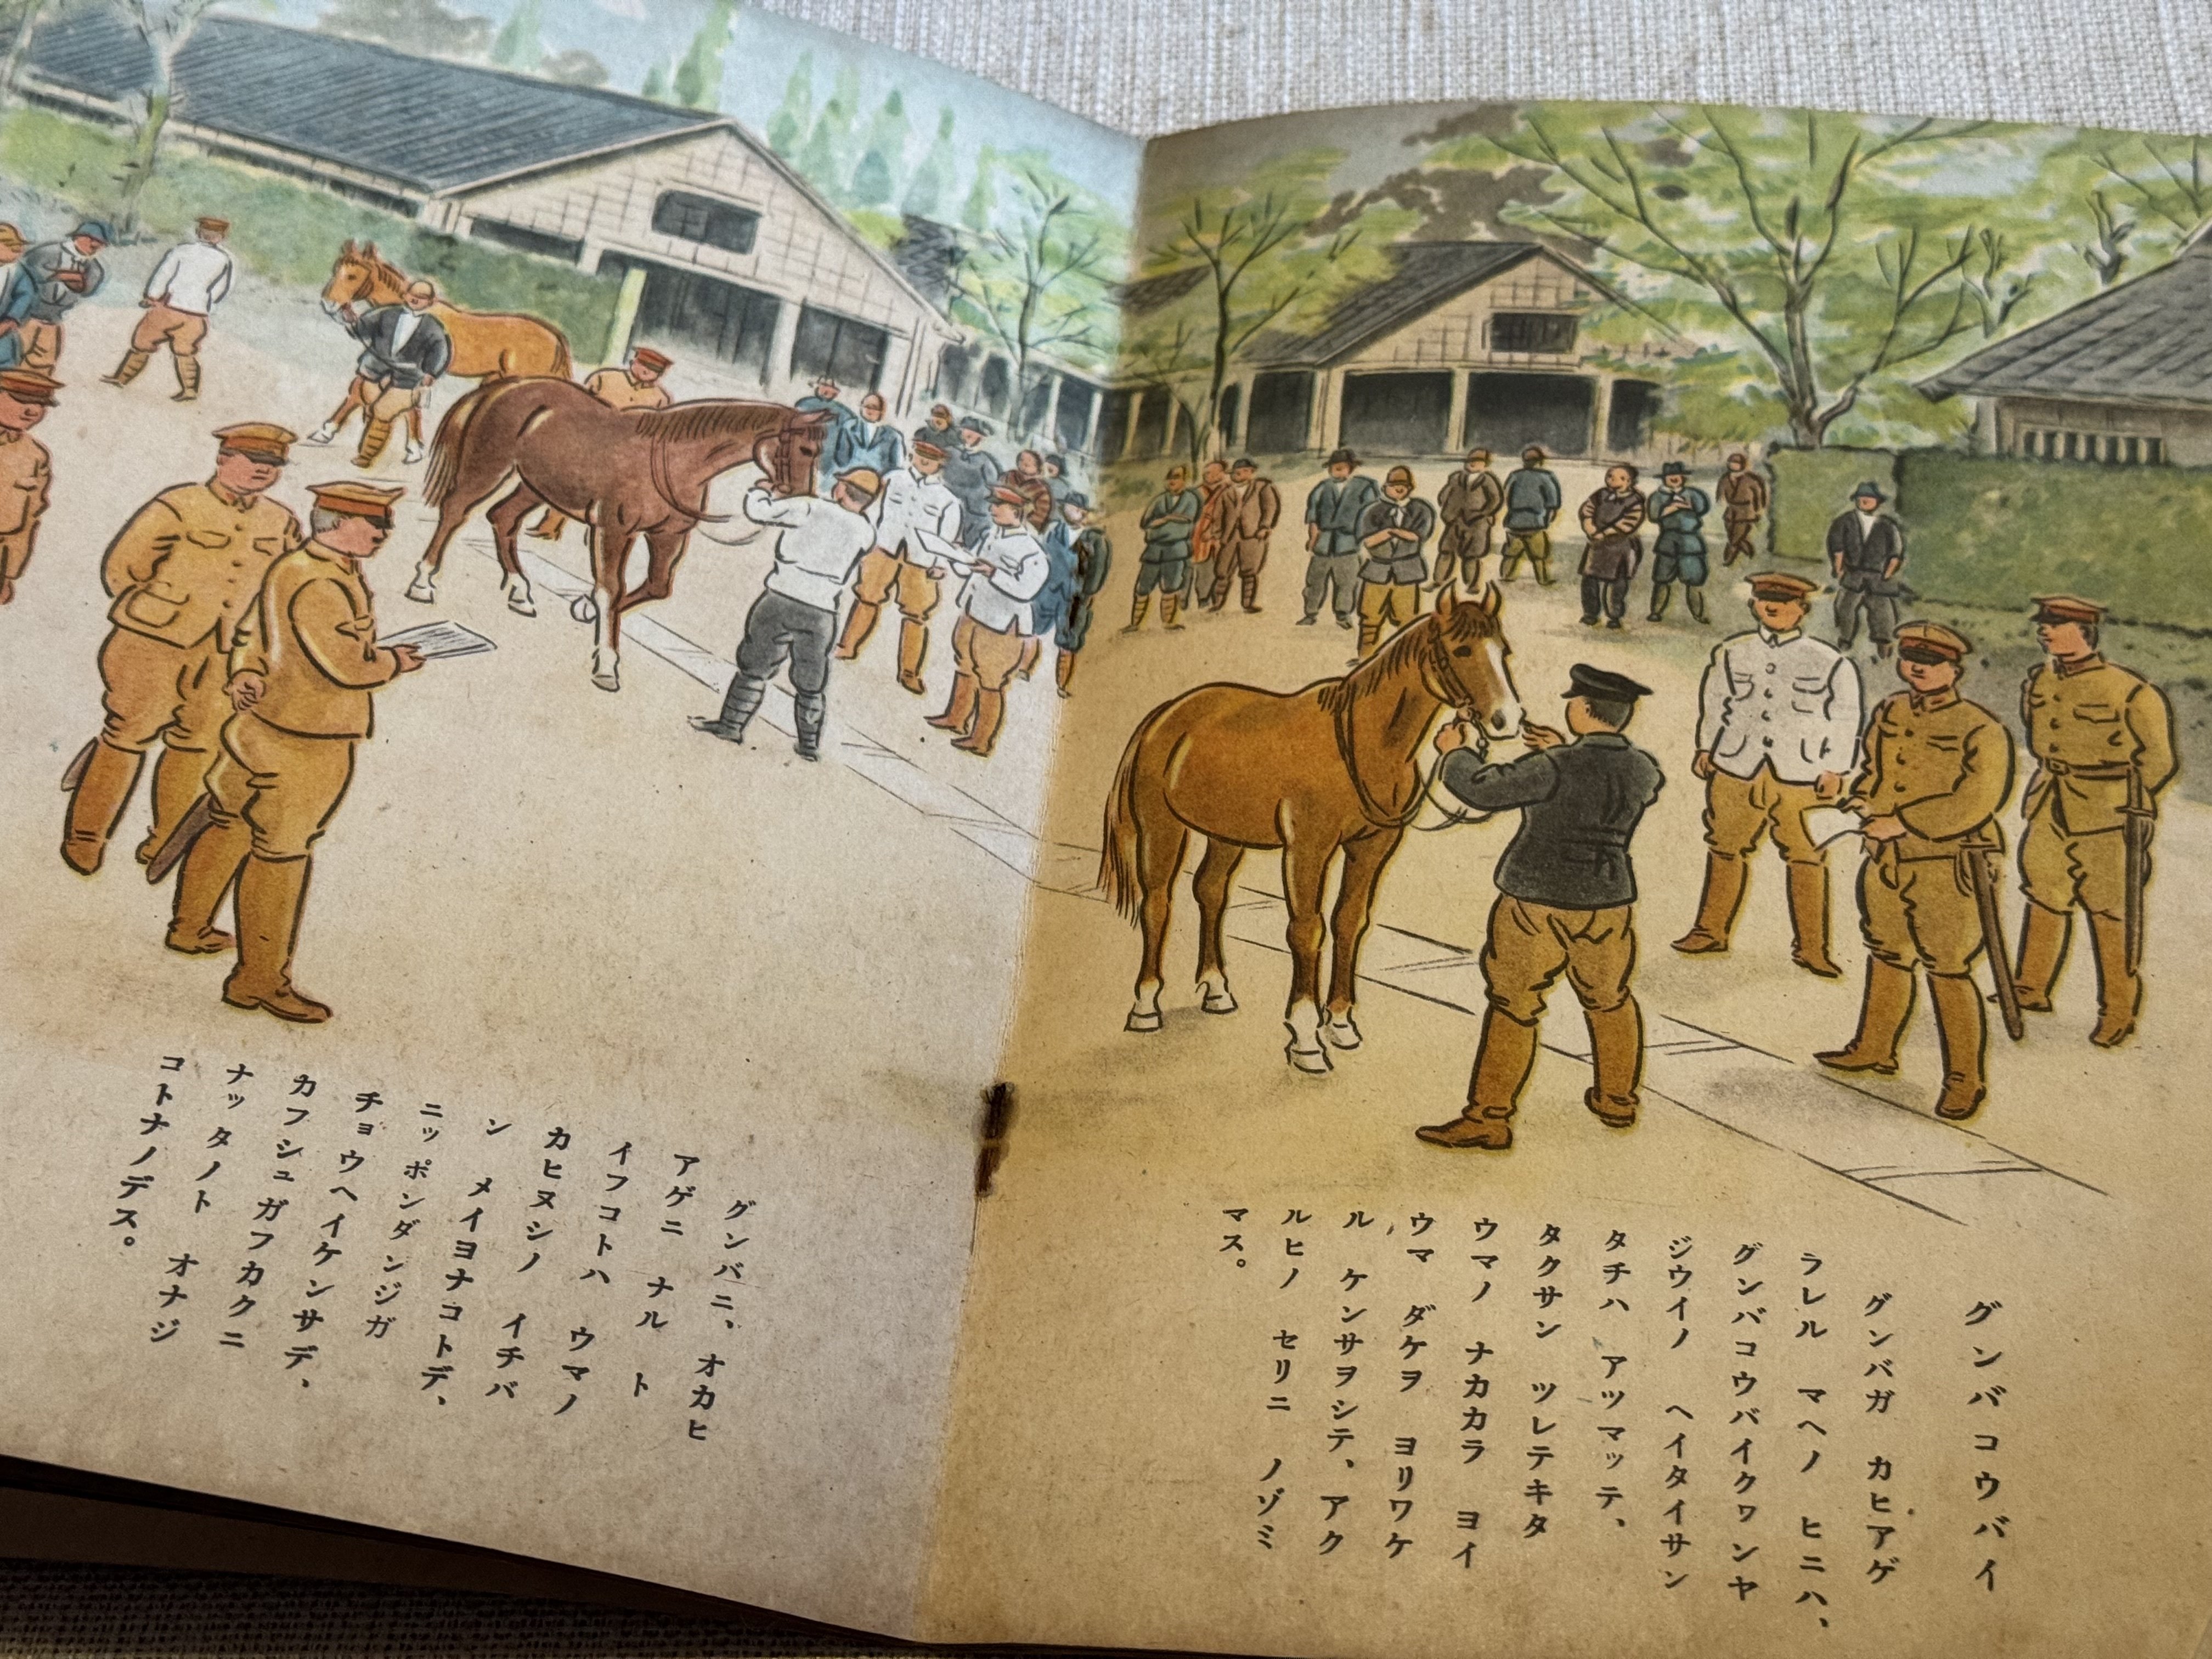 グンバコウバイ
グンバガ カヒアゲ
ラレル マヘノ ヒニハ、
グンバコウバイクヮンヤ
ジウイノ ヘイタイサン
タチハ アツマッテ、
タクサン ツレテキタ
ウマノ ナカカラ ヨイ
ウマ ダケヲ ヨリワケ
ル ケンサヲシテ、アク
ルヒノ セリニ ノゾミ
マス。
グンバニ、オカヒ
アゲニ ナル ト
イフコトハ ウマノ
カヒヌシノ イチバ
ン メイヨナコトデ、
ニッポンダンジガ
チョウヘイケンサデ、
カフシュガフカクニ
ナッタノト オナジ
コトナノデス。